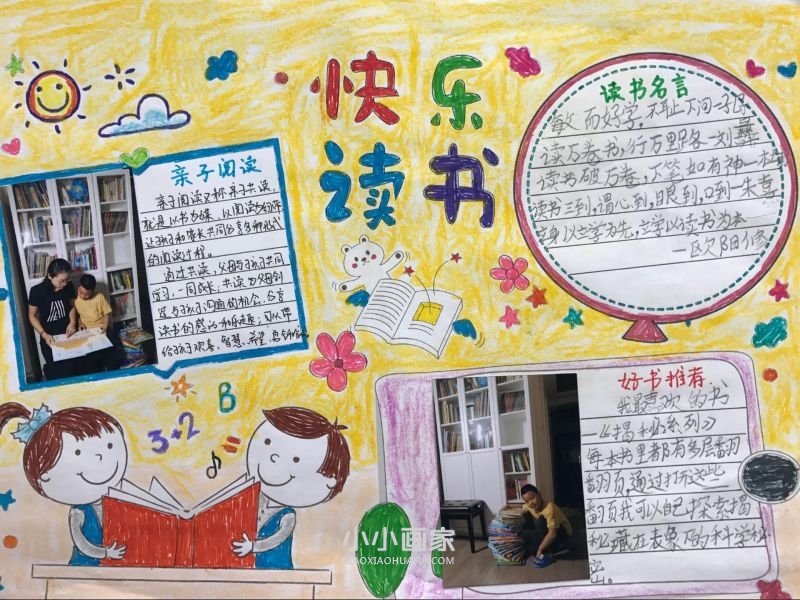 快乐
读书
亲子阅读
亲子阅读又称亲子共读,
就是以书为媒,以阅读为纽带
让孩子和家长共同分享多种形式
的阅读过程。
通过共读,父母与孩子共同
学习,一同成长;共读为父母创
造与孩子沟通的机会,分享
读书的感动和乐趣;可以带
给孩子欢喜、智慧、希望、勇气
读书名言
敏而好学,不耻下问—孔
读万卷书,行万里路—刘彝
读书破万卷,下笔如有神—杜甫
读书三到,谓心到,眼到,口到—朱熹
立身以立学为先,立学以读书为本
—欧阳修
好书推荐
我最喜欢的书
—《揭秘系列》
每本书里者都有多层翻
翻页,通过打开这些
翻页我可以自己探索揭
秘藏在表象下的科学秘
密。
3+2
B
小小画家
XIAOXIAOHUAJIA.COM